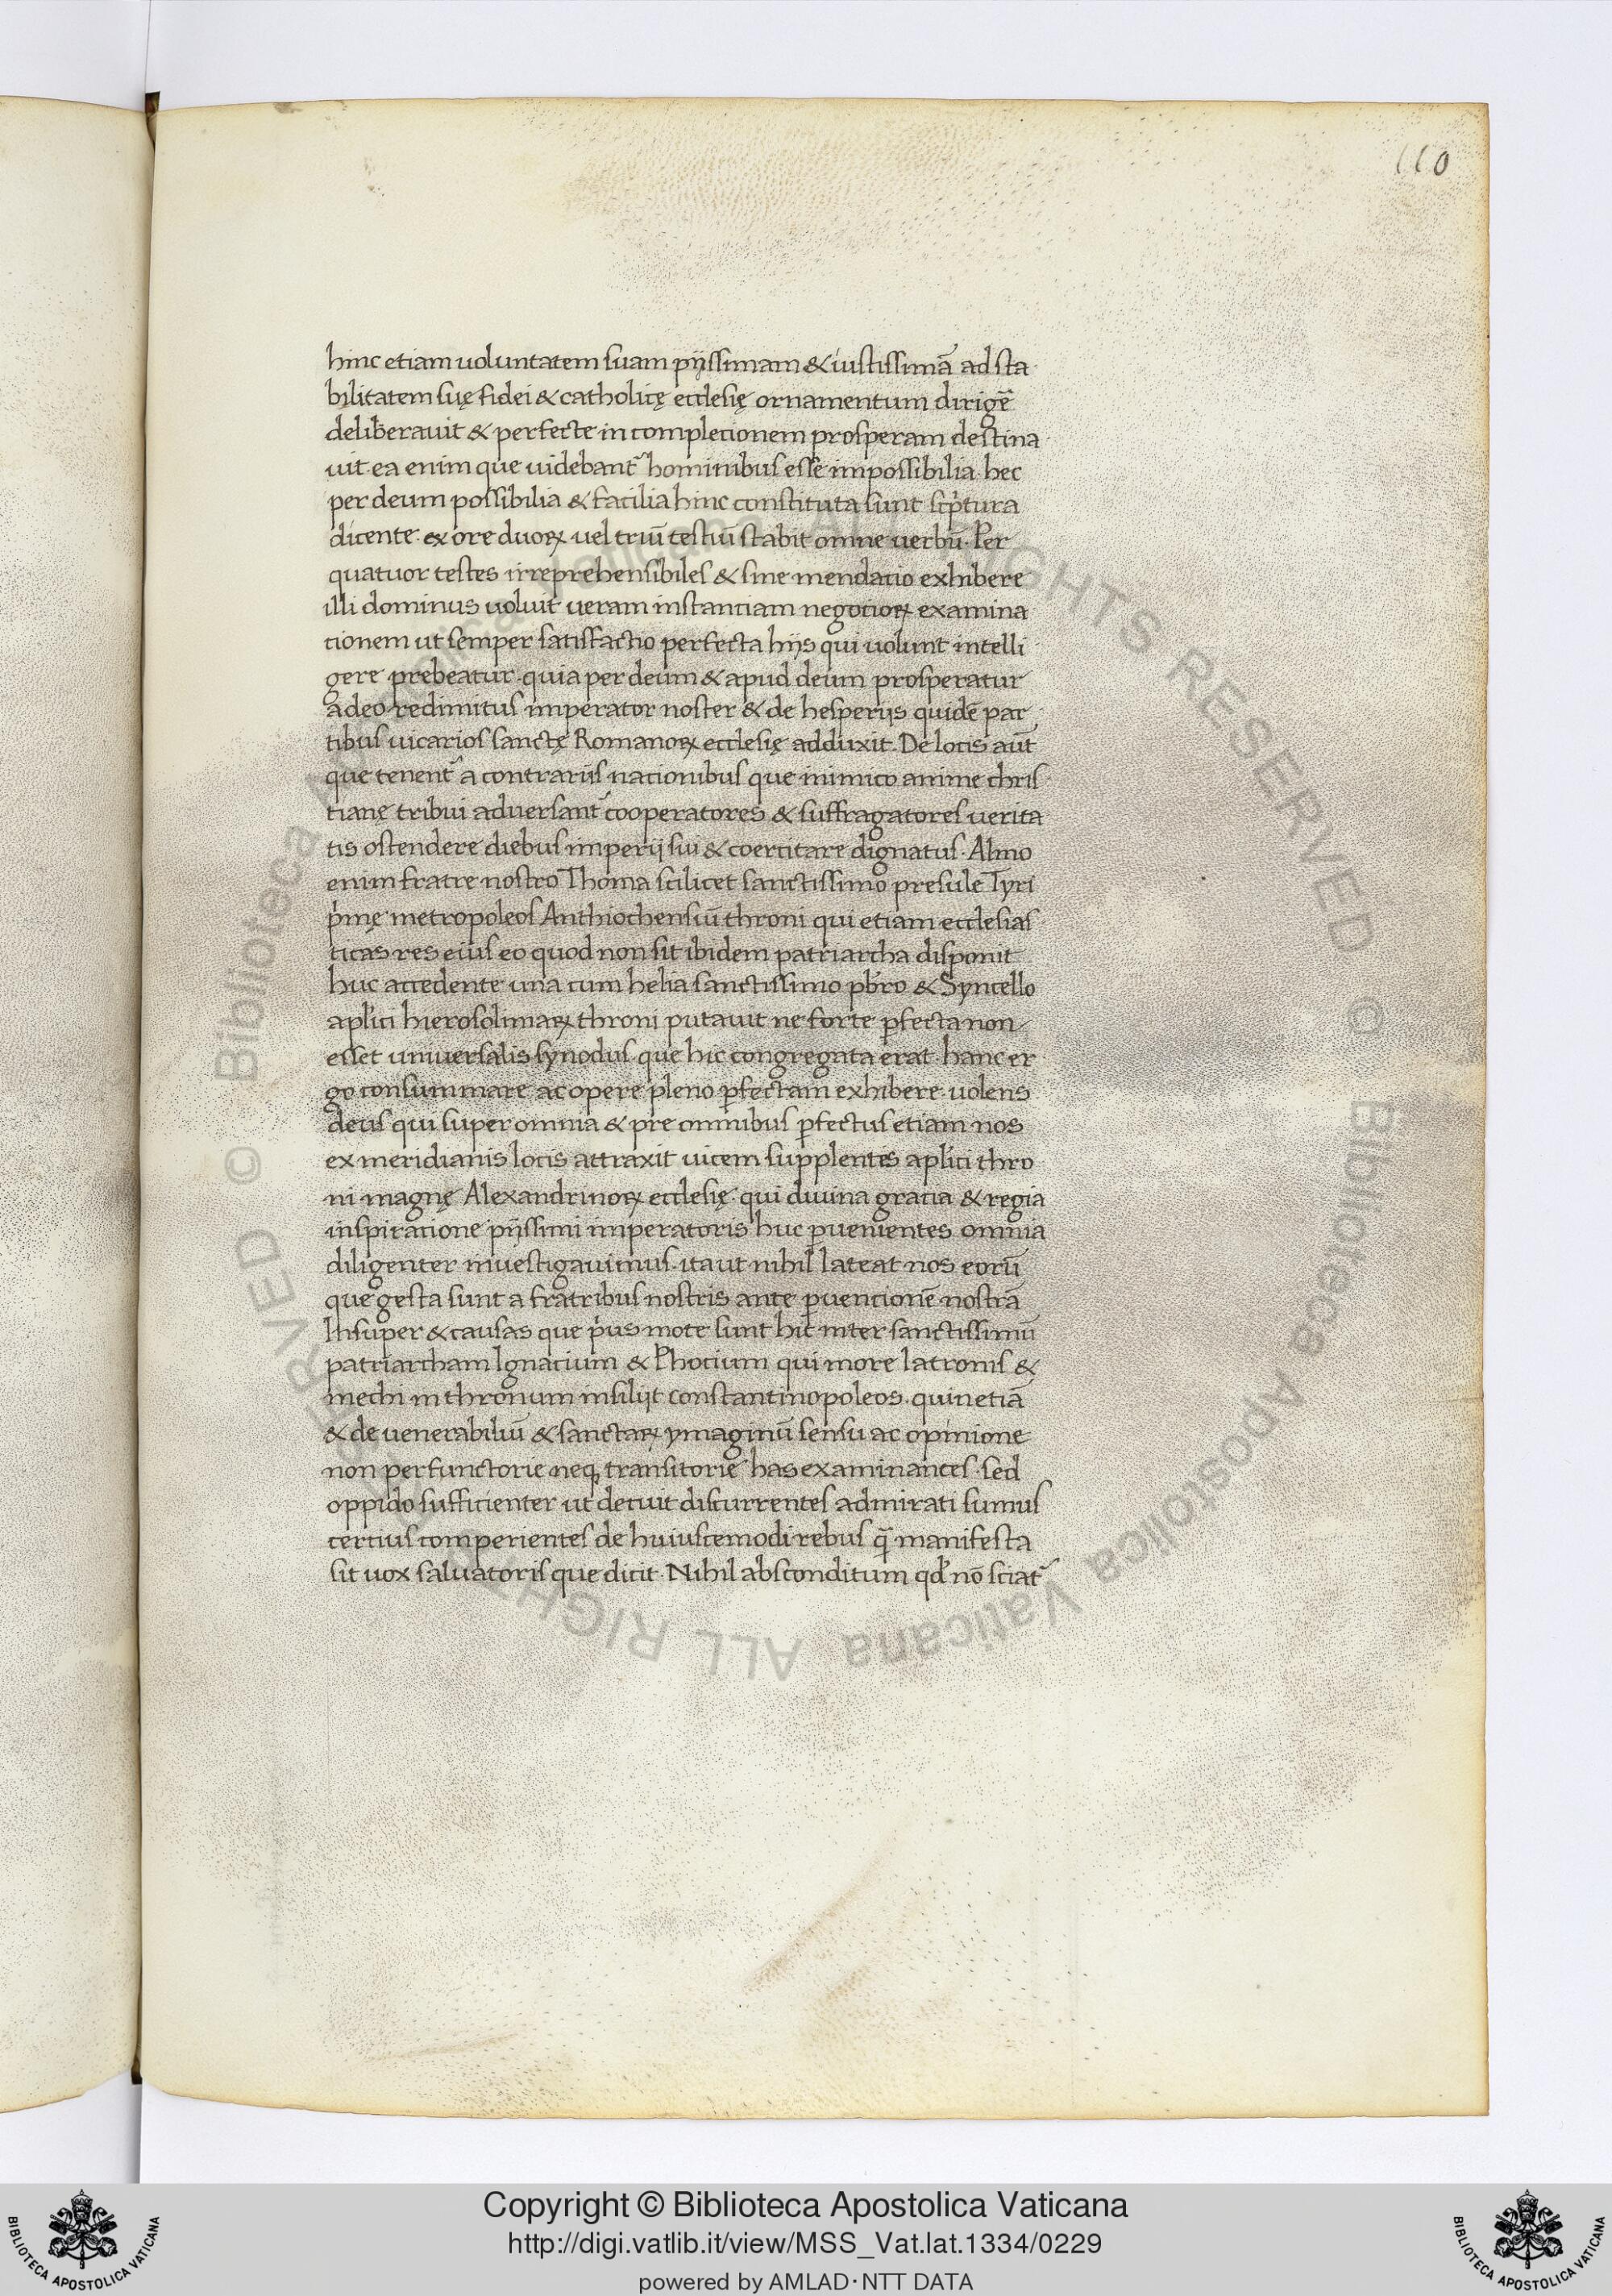 110
hinc etiam uoluntatem suam pijssimam & iustissimā ad sta
bilitatem suę fidei & catholicę ecclesię ornamentum dirigē
deliberauit & perfecte in complecionem prosperam destina
uit ea enim que uidebant᷑ hominibus esse impossibilia hec
per deum possibilia & facilia hinc constituta sunt scp̓tura
dicente ex ore duoꝝ uel triū testiū stabit omne uerbū. Per
quatuor testes irreprehensibiles & sine mendacio exhibere
illi dominus uoluit ueram instantiam negotioꝝ examina
tionem ut semper satisfactio perfecta hijs qui uolunt intelli
gere prebeatur. quia per deum & apud deum prosperatur
adeo redimitus imperator noster & de hesperijs quidē par
tibus uicarios sanctę Romanoꝝ ecclesię adduxit. De locis aūt
que tenent᷑ a contrariis nacionibus que inimico anime chris
tianę tribui aduersant᷑ cooperatores & suffragatores uerita
tis ostendere diebus imperij sui & coercitare dignatus. Almo
enim fratre nostro Thoma scilicet sanctissimo presule Tyri
p̓mę metropoleos Anthiochensiū throni qui etiam ecclesias
ticas res eius eo quod non sit ibidem patriarcha disponit
huc accedente una cum helia sanctissimo pb̄ro & Syncello
apl̓ici hierosolimaꝝ throni putauit ne forte ꝑfecta non
esset uniuersalis synodus que hic congregata erat. hanc er
go consummare ac opere pleno ꝑfectam exhibere uolens
deus qui super omnia & pre omnibus ꝑfectus etiam nos
ex meridianis locis attraxit uicem supplentes apl̓ici thro
ni magnę Alexandrinoꝝ ecclesię qui diuina gratia & regia
inspiratione pijssimi imperatoris huc ꝑuenientes omnia
diligenter inuestigauimus. ita ut nihil lateat nos eorū
que gesta sunt a fratribus nostris ante ꝑuencionē nostrā
Insuper & causas que p̓us mote sunt hic inter sanctissimū
patriarcham Ignacium & Phocium qui more latronis &
mechi in thronum insilijt constantinopoleos. quin etiā
& de uenerabiliū & sanctaꝝ ymaginū sensu ac opinione
non perfunctorie neq; transitorie has examinantes. sed
oppido sufficienter ut decuit discurrentes admirati sumus
certius comperientes de huiuscemodi rebus qm̄ manifesta
sit uox saluatoris que dicit. Nihil absconditum qd̓ nō sciat᷑
Copyright © Biblioteca Apostolica Vaticana
http://digi.vatlib.it/view/MSS_Vat.lat.1334/0229
powered by AMLAD·NTT DATA
BIBLIOTECA APOSTOLICA VATICANA
BIBLIOTECA APOSTOLICA VATICANA
© Biblioteca Apostolica Vaticana ALL RIGHTS RESERVED © Biblioteca Apostolica Vaticana ALL RIGHTS RESERVED